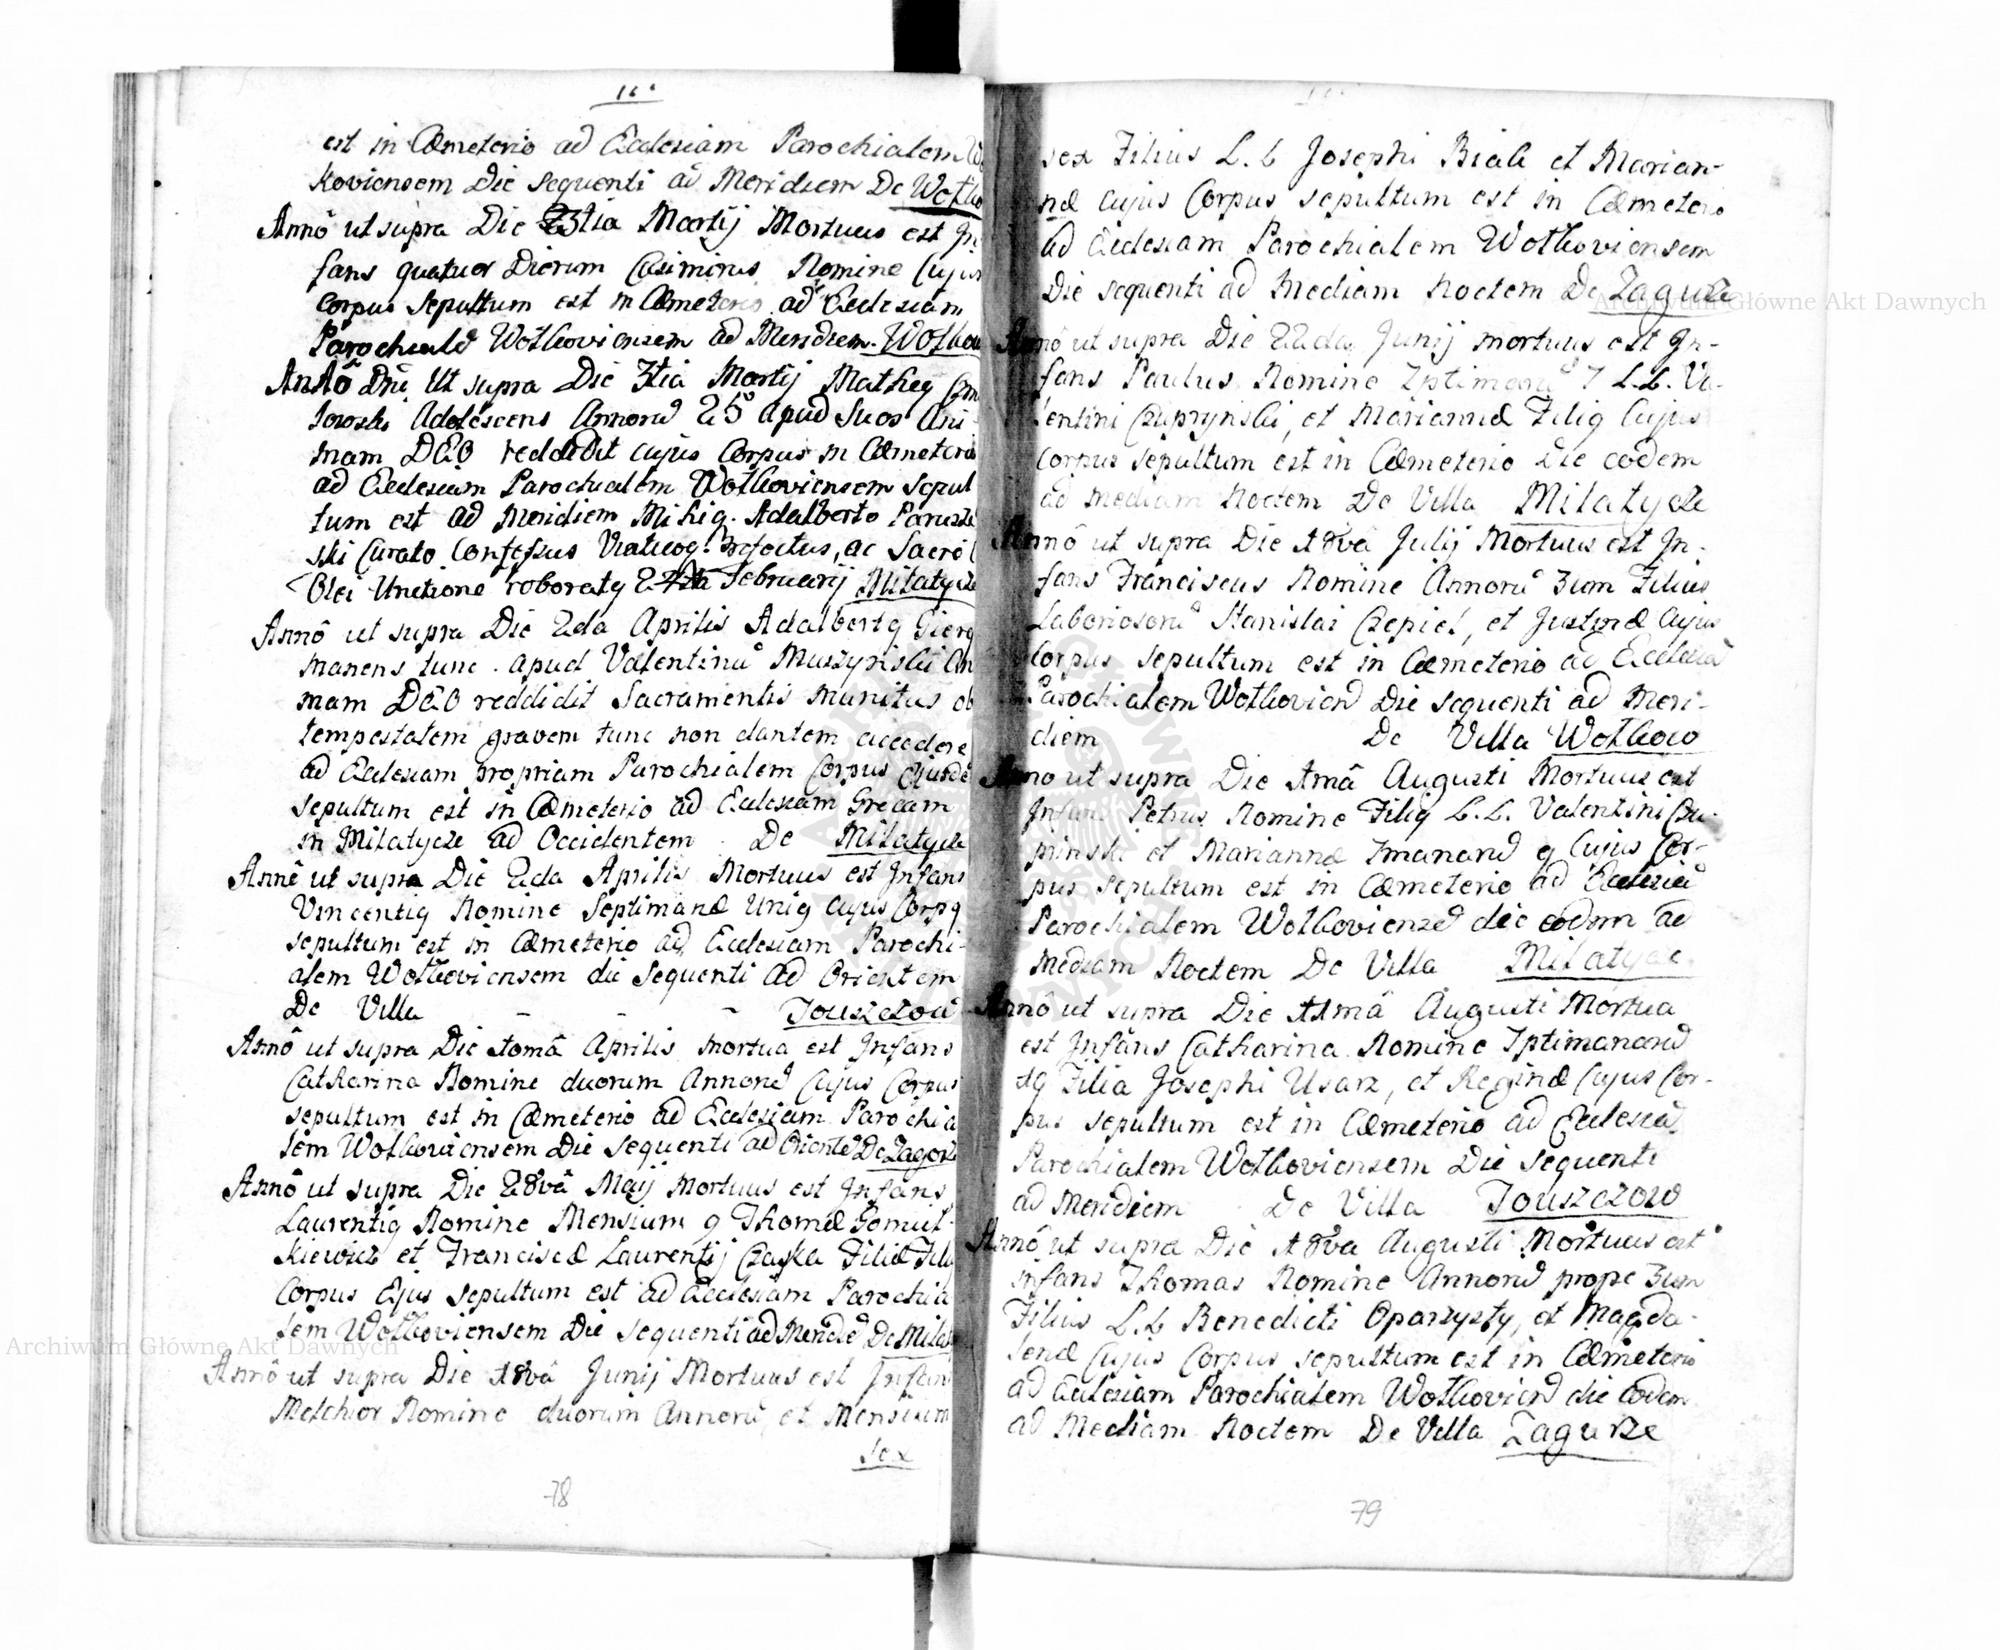 est in Cæmeterio ad Ecclesiam Parochialem
koviensem Die sequenti ad Meridiem De Wołko
Annô ut supra Die 3tia Martij Mortuus est In
fans quatuor Dierum Casimirus Nomine Cujus
Corpus sepultum est in Cæmeterio ad Ecclesiam
Parochialẽ Wołkoviensem ad Meridiem. Wołkow
Annô Dñi Ut supra Die 3tia Martij Matheg
Adolescens Annorũ 25 apud suos Ani
mam DEO reddidit cujus Corpus in Cæmeterio
ad Ecclesiam Parochialem Wołkoviensem sepul
tum est ad Meridiem Mihig. Adalberto
ski Curato Confessus refectus, ac Sacro
Olei Unctione roboratg 24ta Februarij Miłatycze
Annô ut supra Die 2da Aprilis Adalbertg
manens tunc apud Valentinũ Muszynski An
mam DEO reddidit Sacramentis munitus ob
tempestatem gravem tunc non dantem accedere
ad Ecclesiam propriam Parochialem Corpus Ejusdẽ
sepultum est in Cæmeterio ad Ecclesiam Grecam
in Miłatycze ad Occidentem De Miłatycze
Annô ut supra Die 2da Aprilis Mortuus est Infans
Vincentig Nomine Septimanæ Unig cujus Corpg
sepultum est in Cæmeterio ad Ecclesiam Parochi-
alem Wołkoviensem die sequenti ad Orientem
De Villa - - - Touszczow
Annô ut supra Die 10mâ Aprilis Mortua est Infans
Catharina Nomine duorum Annorũ Cujus Corpus
sepultum est in Cæmeterio ad Ecclesiam Parochia
lem Wołkoviensem Die sequenti ad Orientẽ De Zagorz
Annô ut supra Die 28vâ Maij Mortuus est Infans
Laurentig Nomine Mensium 9 Thomæ Gomuł-
kiewicz et Franciscæ Laurentij Czayka Filiæ Filig
Corpus Ejus sepultum est ad Ecclesiam Parochia
lem Wołkoviensem Die sequenti ad Meridiẽ De Miłat
Annô ut supra Die 18vâ Junij Mortuus est Infans
Melchior Nomine duorum Annorũ, et Mensium
sex
78
sex Filius L.L Josephi Biały et Marian-
næ cujus Corpus sepultum est in Cæmeterio
ad Ecclesiam Parochialem Wołkoviensem
Die sequenti ad Mediam Noctem De Zagurze
Annô ut supra Die 22da Junij mortuus est In-
fans Paulus Nomine 7ptimanarũ 7 L.L. Va-
lentini Czuprynski, et Mariannæ Filig Cujus
Corpus sepultum est in Cæmeterio Die eodem
ad mediam Noctem De Villa Miłatycze
Annô ut supra Die 18vâ Julij Mortuus est In-
fans Franciscus Nomine Annorũ 3um Filius
Laboriosorũ Stanislai Czepiel, et Justinæ Cujus
Corpus sepultum est in Cæmeterio ad Ecclesiã
Parochialem Wołkovien̄ Die sequenti ad Meri-
diem De Villa Wołkow
Anno ut supra Die 1mâ Augusti Mortuus est
Infans Petrus Nomine Filig L.L. Valentini Czu-
prinski et Mariannæ 7manarũ 9 Cujus Cor-
pus sepultum est in Cæmeterio ad Ecclesiã
Parochialem Wołkoviensẽ die eodem ad
Mediam Noctem De Villa Miłatycze
Annô ut supra Die 11mâ Augusti Mortua
est Infans Catharina Nomine 7ptimanarũ
19 Filia Josephi Usarz, et Reginæ Cujus Cor-
pus sepultum est in Cæmeterio ad Ecclesiã
Parochialem Wołkoviensem Die sequenti
ad Meridiem De Villa Touszczow
Annô ut supra Die 18va Augusti Mortuus est
infans Thomas Nomine Annorũ prope 3um
Filius L.L Benedicti Oparzysty, et Magda-
lenæ Cujus Corpus sepultum est in Cæmeterio
ad Ecclesiam Parochialem Wołkovien̄ die eodem
ad Mediam Noctem De Villa Zagurze
79
Archiwum Główne Akt Dawnych
Archiwum Główne Akt Dawnych